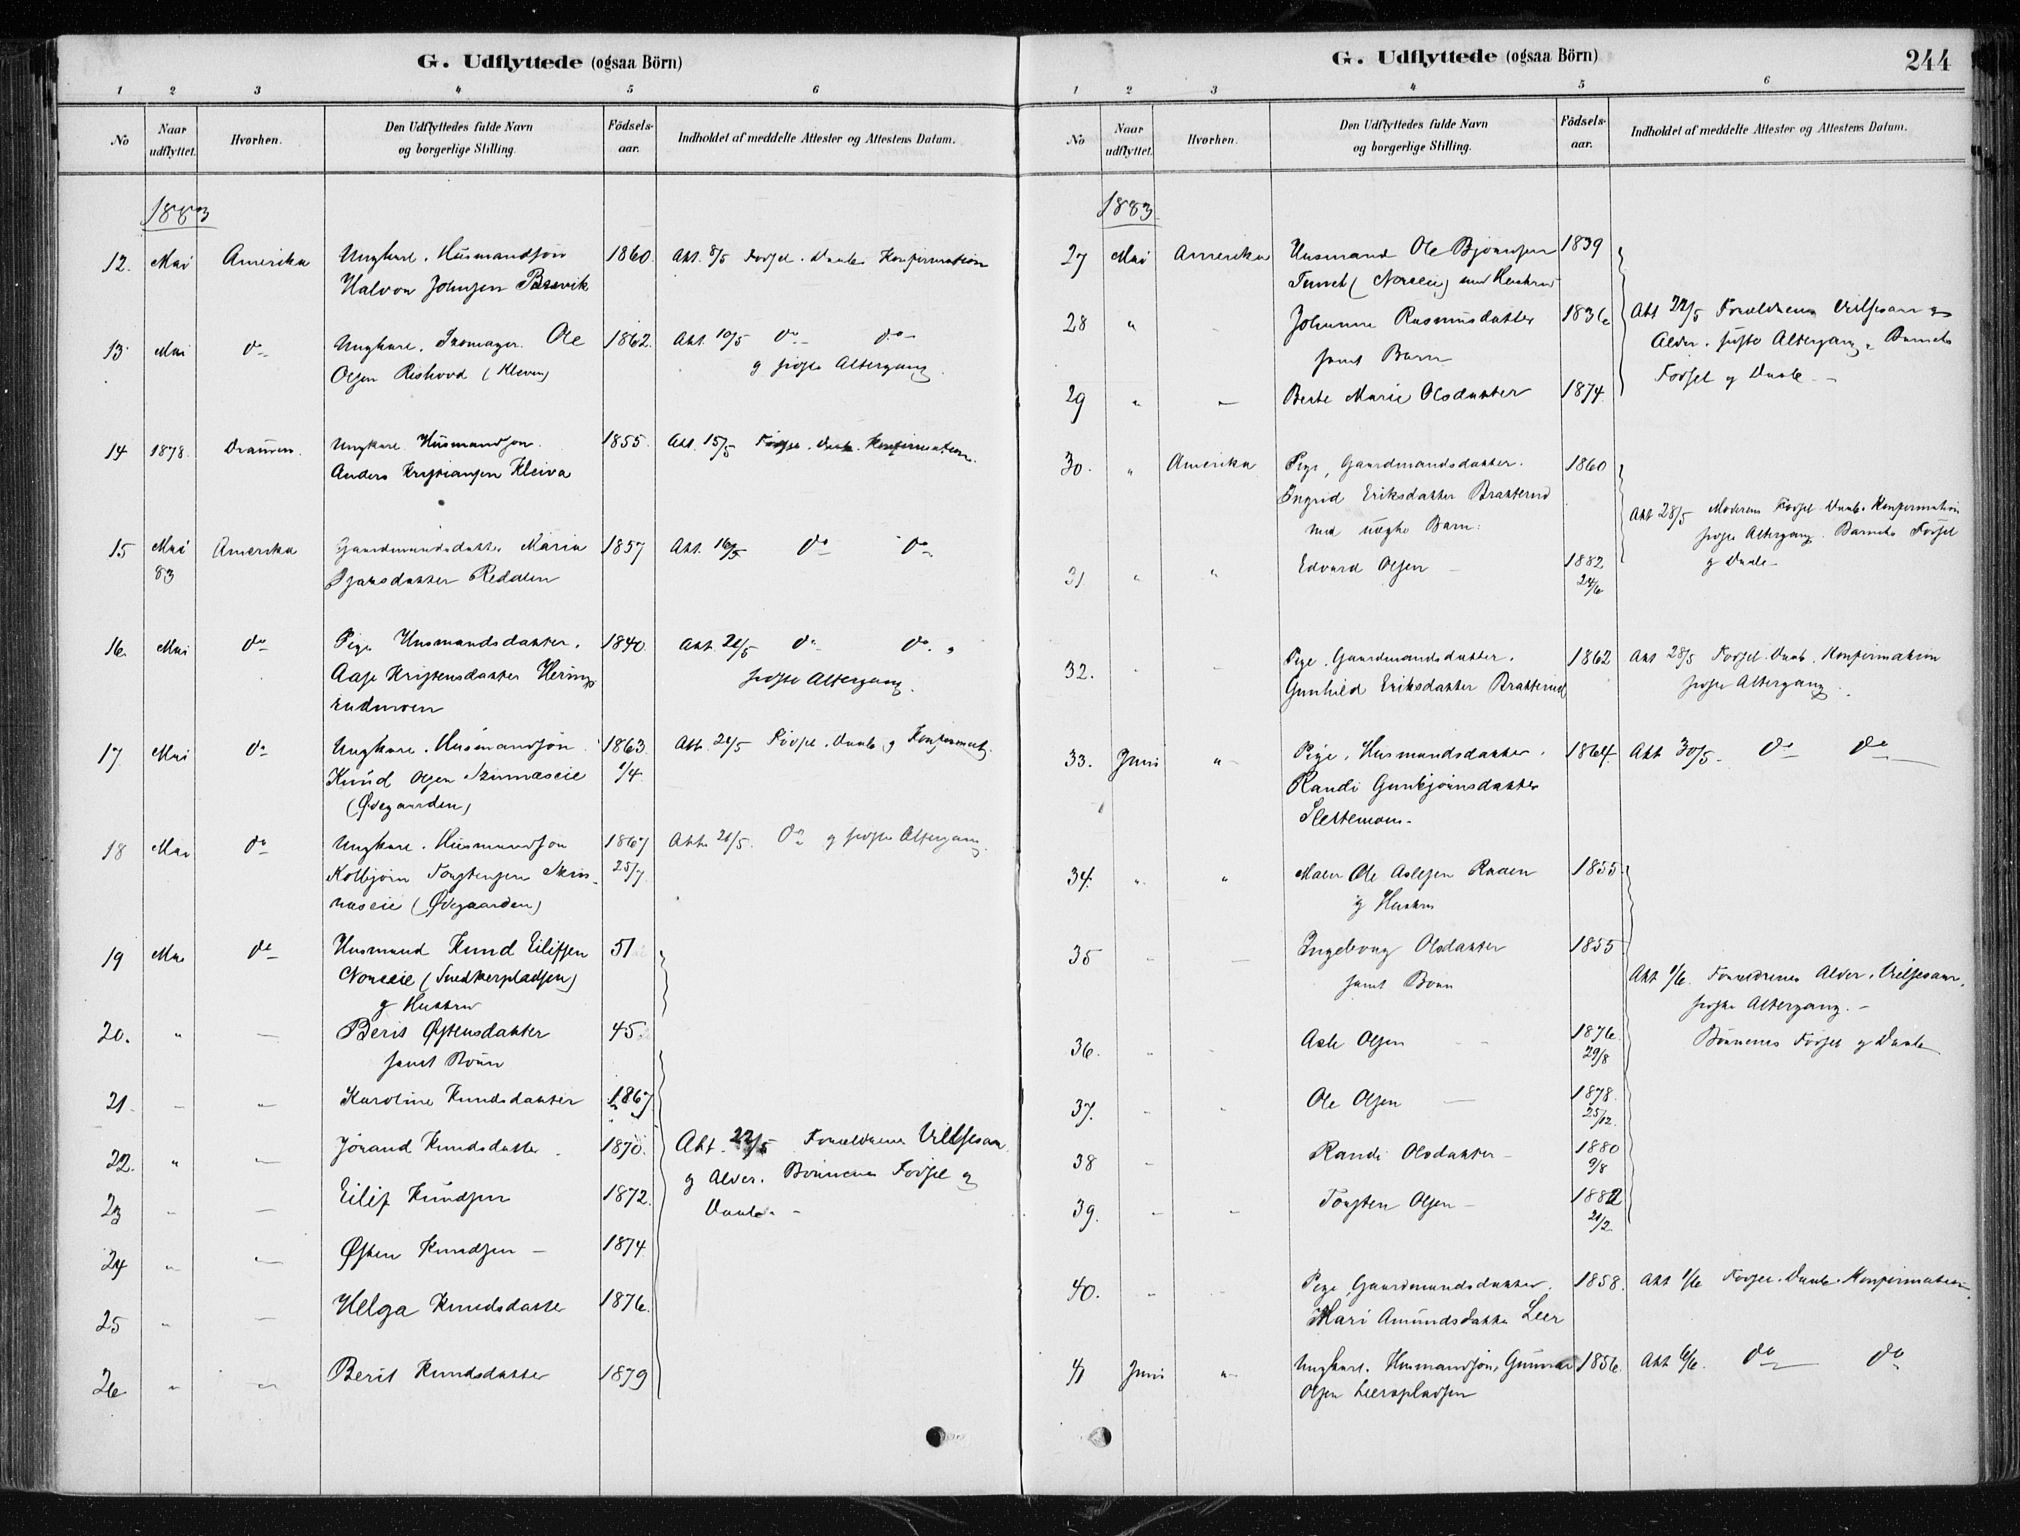 G. Udflyttede (ogsaa Börn)
1 2 3 4 5 6
No
Naar udflyttet.
Hvorhen.
Den Udflyttedes fulde Navn
og borgerlige Stilling.
Födsels-
aar.
Indholdet af meddelte Attester og Attestens Datum.
1883
12. Mai Amerika Ungkarl. Husmandssøn 1860 Att. 8/5 Fødsel. Daab. Konfirmation
Halvor Johnsen
13 Mai do Ungkarl. Skomager. Ole 1862. Att. 10/5 do do
Olsen Rishovd (Kleven) og sidste Altergang.
14 1878. Drammen. Ungkarl Husmandssøn. 1855. Att. 15/5 Fødsel. Daab. Konfirmation.
Anders Kristiansen Kleiva
15 Mai Amerika Gaardmandsdatter Maria 1857 Att. 16/5 do do
83 Redalen
16. Mai do Pige Husmandsdatter. 1840. Att. 21/5 do do.
Aase Kristensdatter
sidste Altergang.
17 Mai do Ungkarl. Husmandssøn 1863. Att. 21/5 Fødsel. Daab og Konfirmat.
Knud Olsen 1/4.
(Ødegaarden)
18 Mai do Ungkarl. Husmandssøn 1867 Att. 21/5. do og sidste Altergang.
Kolbjørn Torstensen 25/7.
(Ødegaarden)
19 Mai do Husmand Knud Eilifsen 51
(Snedkerpladsen)
og Hustru
20. " — Berit Østensdatter 45
samt Børn
21. — — Karoline Knudsdatter 1867
22. " — Jørand Knudsdatter 1870. Att. 22/5 Forældrenes Vielsesaar
og Alder. Børnenes Fødsel og
23 " — Eilif Knudsen 1872.
Daab. —
24 " — Østen Knudsen — 1874.
25 " — Helga Knudsdatter 1876.
26 " — Berit Knudsdatter 1879
G. Udflyttede (ogsaa Börn)
244
1 2 3 4 5 6
No
Naar udflyttet.
Hvorhen.
Den Udflyttedes fulde Navn
og borgerlige Stilling.
Födsels-
aar.
Indholdet af meddelte Attester og Attestens Datum.
1883
27 Mai Amerika Husmand Ole Bjørnsen 1839
med Hustru
28 " — Johanne Rasmusdatter 1836 Att 22/5 Forældrenes Vielsesaar og
samt Barn Alder. sidste Altergang. Barnets
29 " — Berte Marie Olsdatter 1874. Fødsel og Daab. —
30. " Amerika Pige, Gaardmandsdatter. 1860
Ingrid Eriksdatter Bratterud
med uægte Barn:
Att 28/5 Moderens Fødsel. Daab. Konfirmation
sidste Altergang. Barnets Fødsel
og Daab.
31 " " Edvard Olsen — 1882
24/6
32. " " Pige. Gaardmandsdatter. 1862 Att 28/5 Fødsel. Daab. Konfirmation
Gunhild Eriksdatter Bratterud sidste Altergang.
33. Juni " Pige. Husmandsdatter. 1864. Att 30/5. do do
Randi Gunbjørnsdatter
Slettemoen.
34. " " Maler Ole Aslesen Raaen 1855
og Hustru
35 " — Ingeborg Olsdatter 1855
samt Børn
Att 1/6. Forældrenes Alder. Vielsesaar.
sidste Altergang. —
Børnenes Fødsel og Daab
36. " " Asle Olsen — 1876.
29/8
37. " " Ole Olsen — 1878.
25/12.
38 " Randi Olsdatter — 1880
9/8
39. " " Torsten Olsen — 1882
21/2.
40. " " Pige Gaardmandsdatter. 1858. Att 1/6 Fødsel. Daab. Konfirmation.
Mari Amundsdatter Leer
41 Juni " Ungkarl. Husmandssøn, Gunnar 1856. Att 6/6. do do
Olsen Leerspladsen